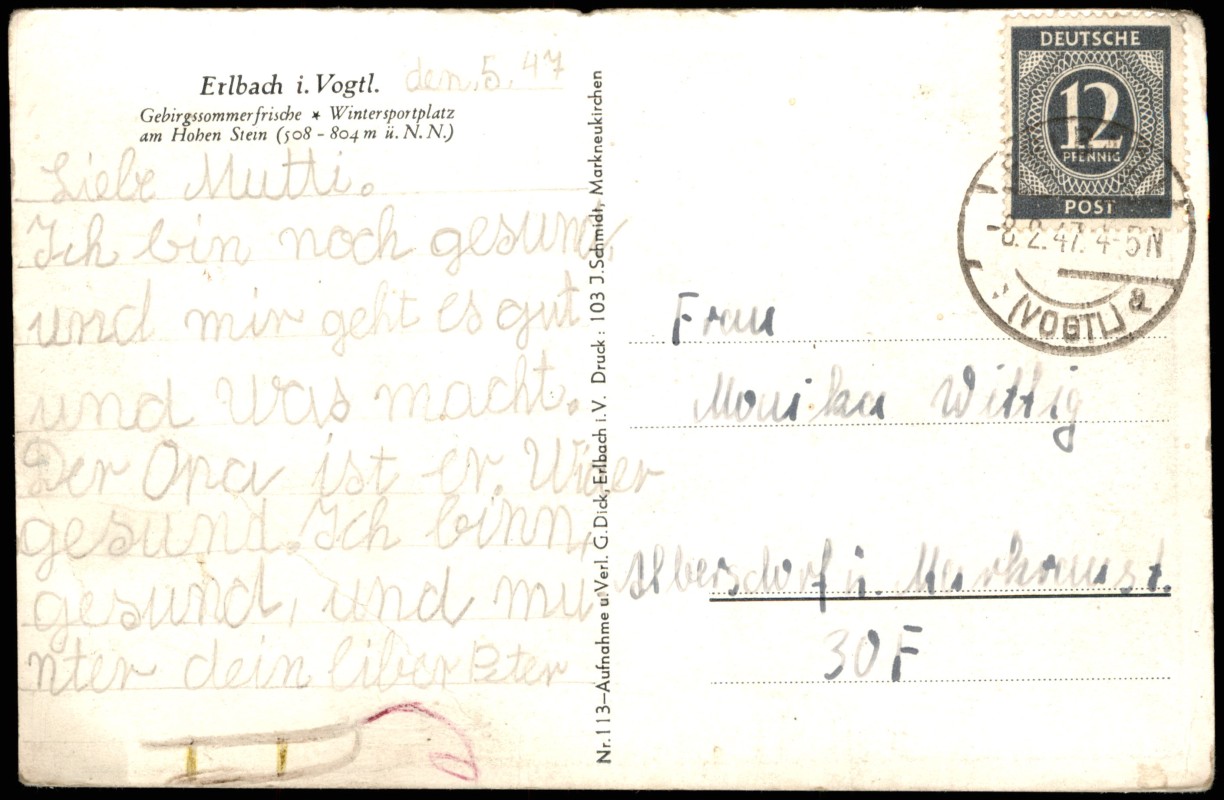 Erlbach i. Vogtl.
den. 5. 47
Gebirgssommerfrische ★ Wintersportplatz
am Hohen Stein (508 – 804 m ü. N. N.)
Liebe Mutti.
Ich bin noch gesund,
und mir geht es gut
und Was macht.
Der Opa ist er. Wider
gesund. Ich binn,
gesund, und mu
nter dein liber Peter
Nr. 113—Aufnahme u. Verl. G. Dick, Erlbach i. V. Druck: 103 J. Schmidt, Markneukirchen
DEUTSCHE
12
PFENNIG
POST
-8.2.47.4-5N
(VOGTL) a
Frau
Monika Wittig
Albersdorf ü. Markranst.
30F